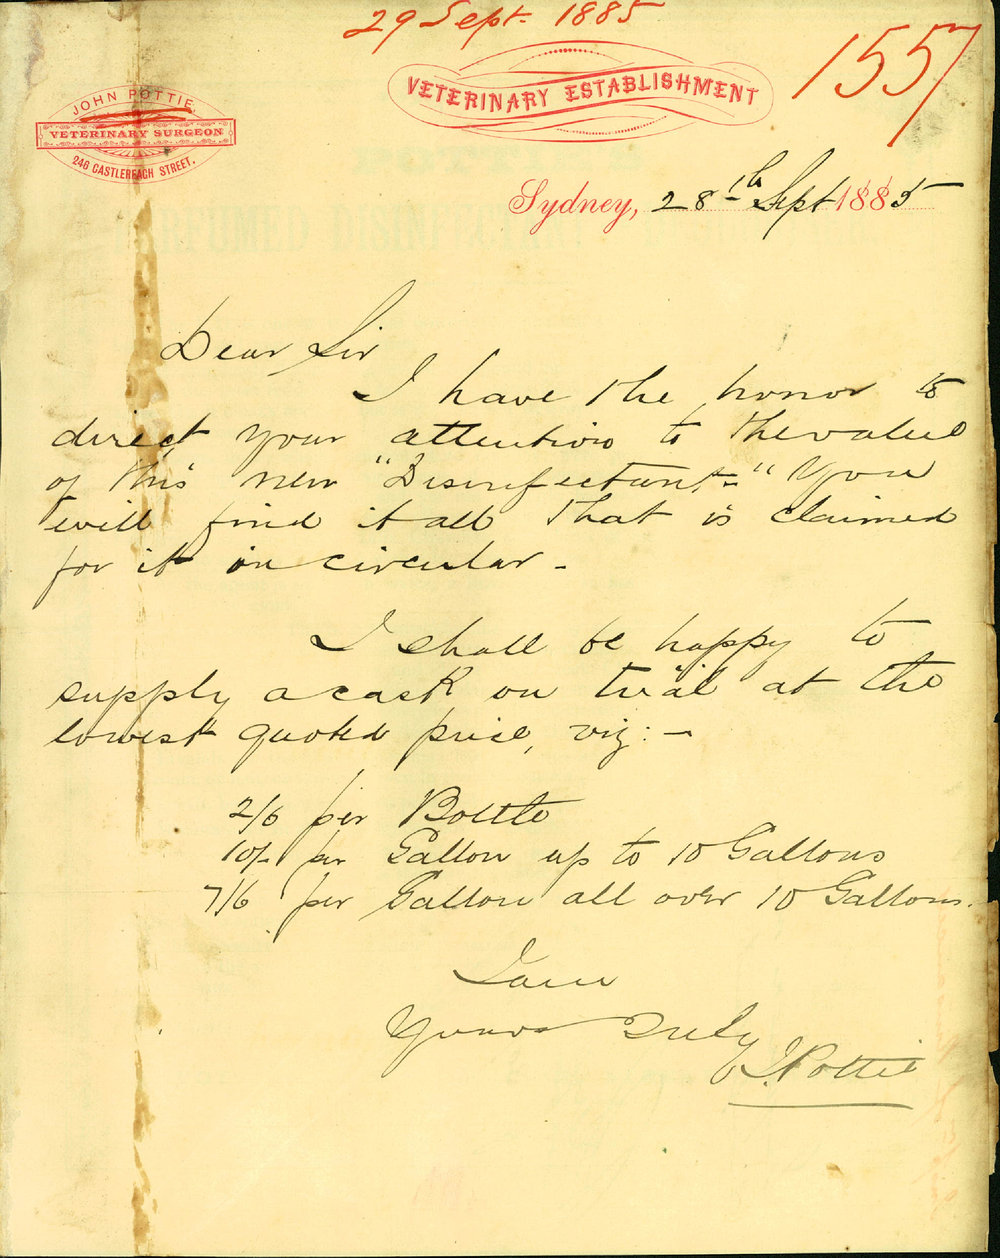 29 Sept. 1885
1557
VETERINARY ESTABLISHMENT
JOHN POTTIE,
VETERINARY SURGEON
246 CASTLEREAGH STREET.
Sydney, 28th Sept 1885
Dear Sir
I have the honor to
direct your attention to the value
of this new "Disinfectant" You
will find it all that is claimed
for it in circular -
I shall be happy to
supply a cask on trial at the
lowest quoted price, viz: -
2/6 per Bottle
10/- per Gallon up to 10 Gallons
7/6 per Gallon all over 10 Gallons.
I am
Yours Truly
J. Pottie